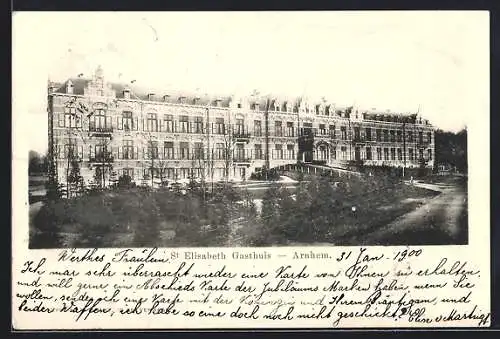 St Elisabeth Gasthuis — Arnhem.
Werthes Fräulein, 31 Jan. - 1900
Ich war sehr überrascht wieder eine Karte von Ihnen zu erhalten,
und will gern, ein Abschieds Karte der Jubiläums Marken haben, wenn Sie
wollen, sende ich eine Karte mit der Königin und, und
leider Waffen, ich habe so eine doch noch nicht geschickt?